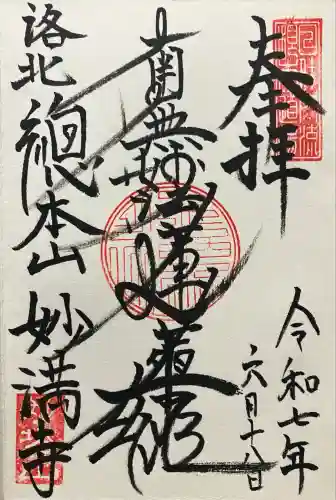 奉拝
令和七年
六月十八日
南無妙法蓮華経
洛北
總本山 妙満寺